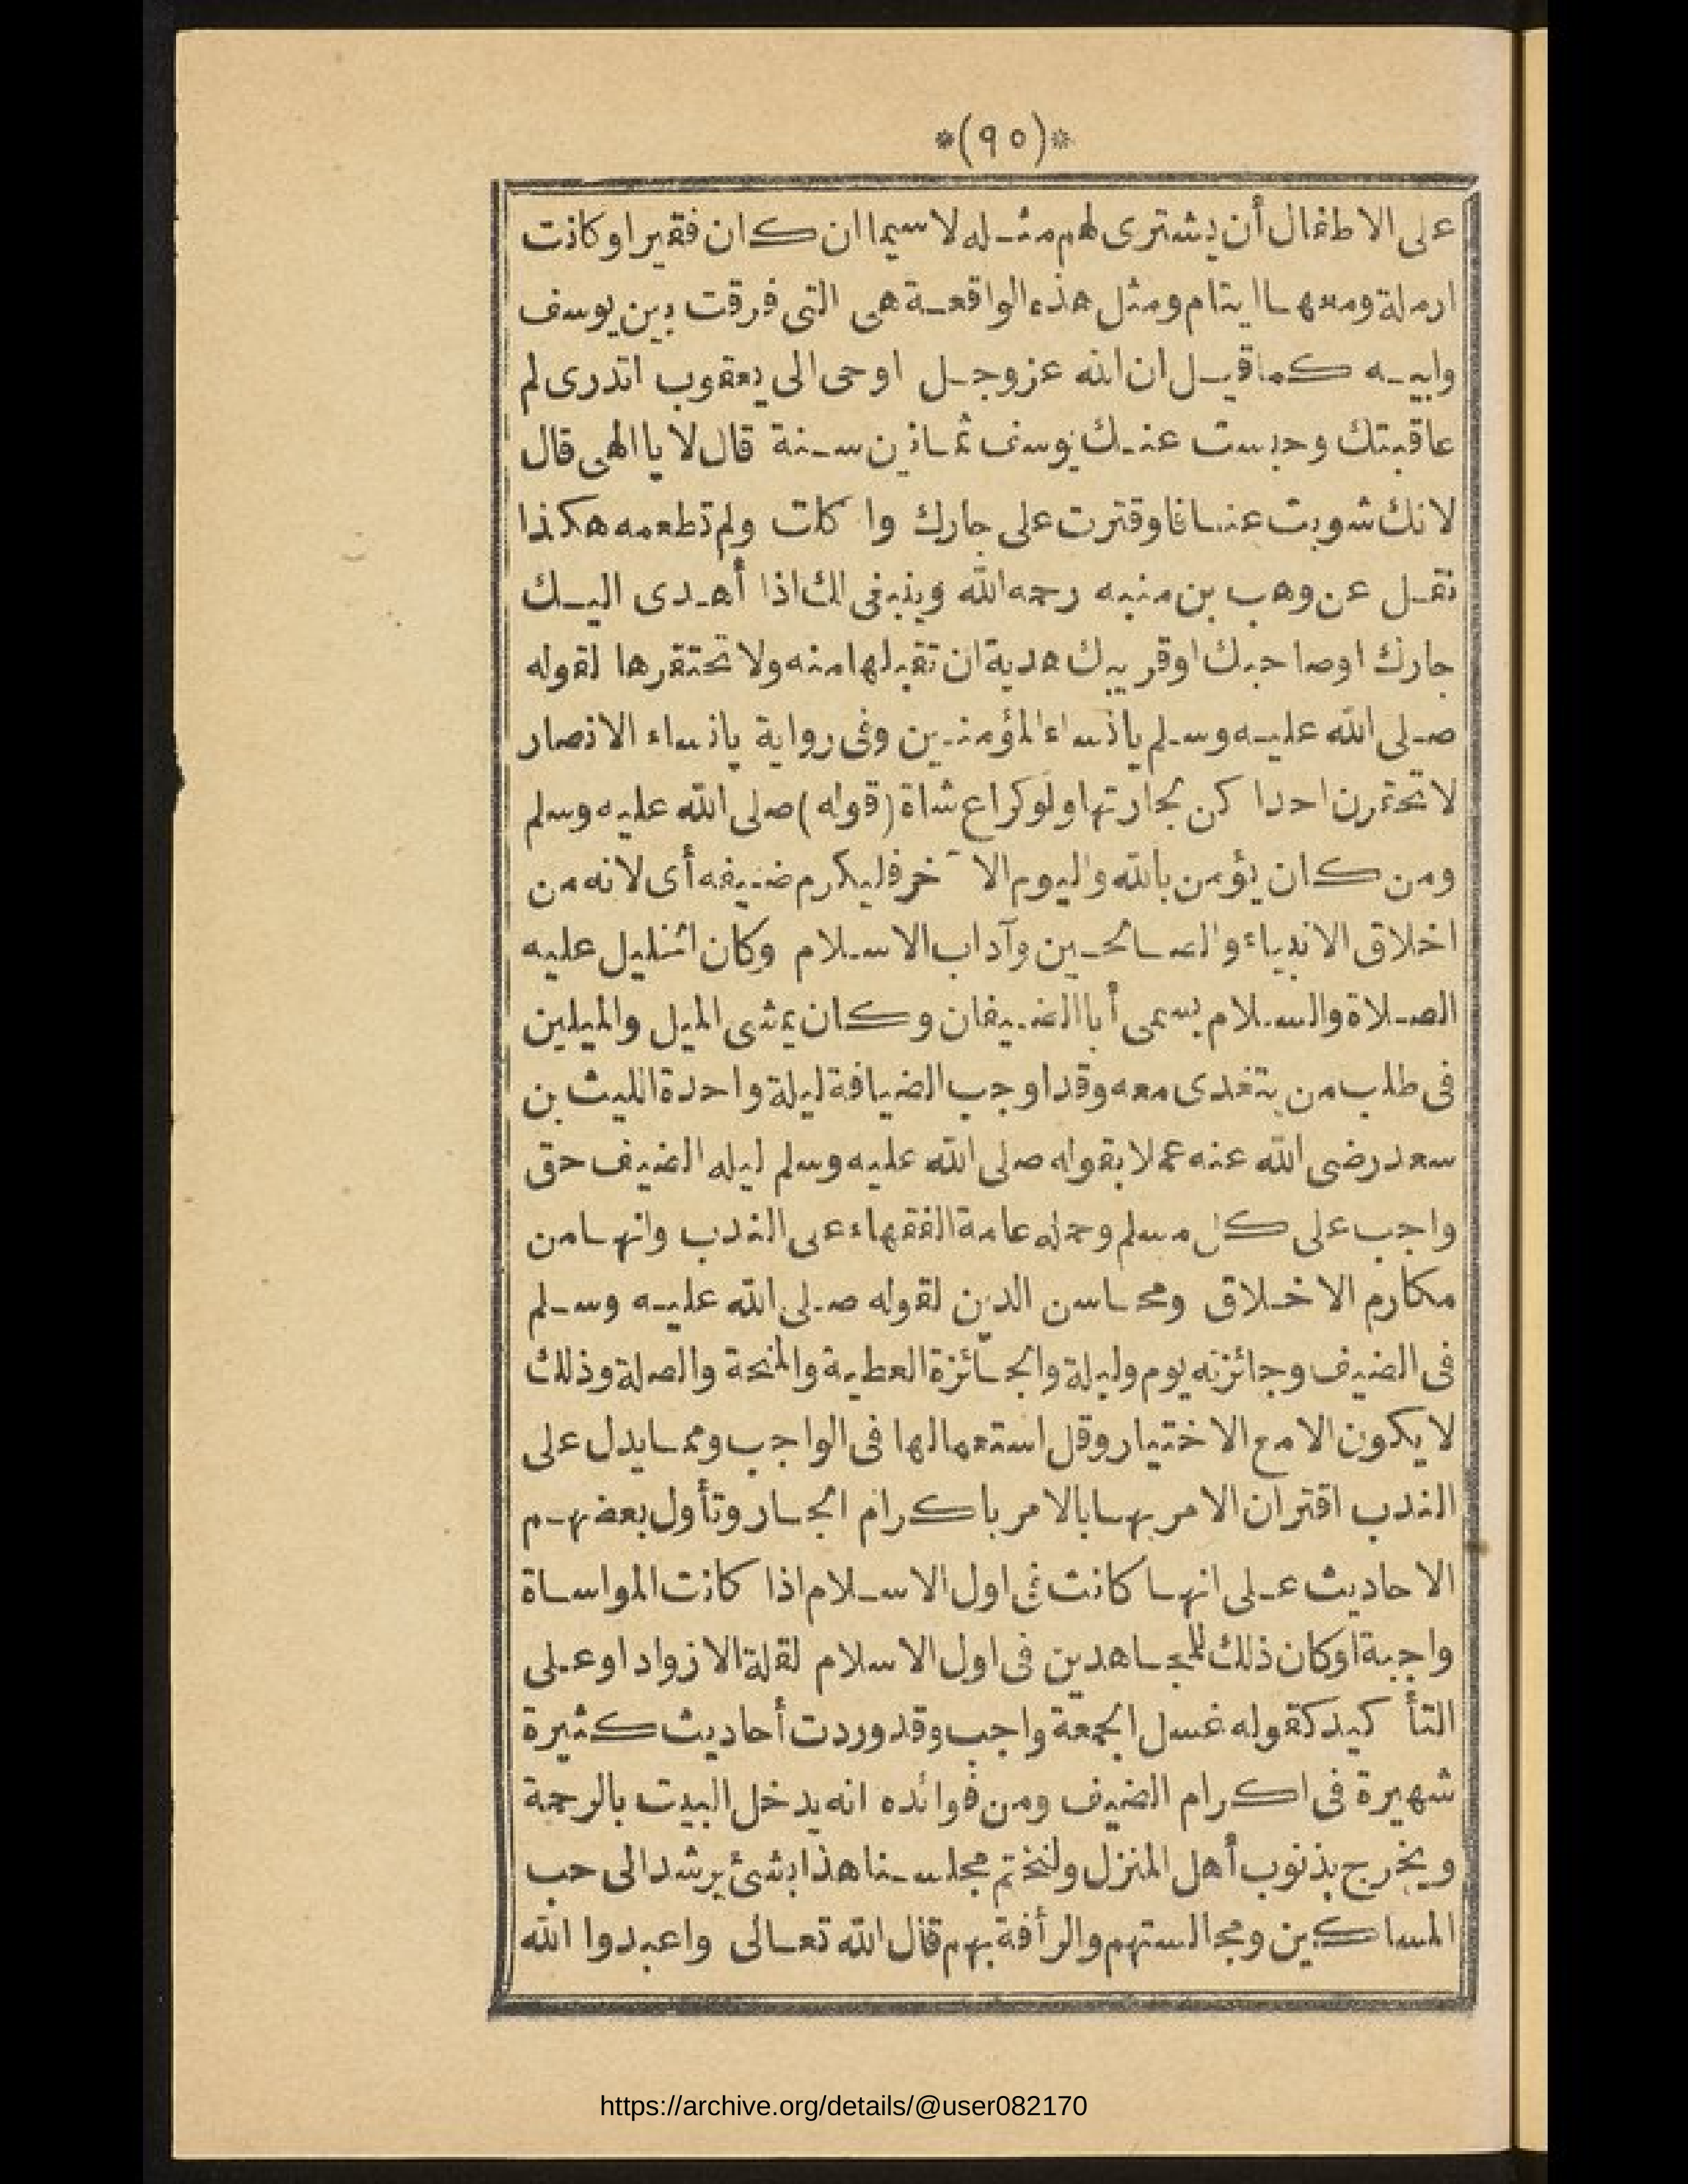 *(٩٠)*
على الاطفال أن يشترى لهم مثله لا سيما ان كان فقيرا اوكانت
ارملة ومعها ايتام ومثل هذه الواقعة هى التى فرقت بين يوسف
وابيه كما قيل ان الله عزوجل اوحى الى يعقوب اتدرى لم
عاقبتك وحبست عنك يوسف ثمانين سنة قال لا يا الهى قال
لانك شويت عناقا وقترت على جارك واكلت ولم تطعمه هكذا
نقل عن وهب بن منبه رحمه الله وينبغى لك اذا أهدى اليك
جارك اوصاحبك اوقريبك هدية ان تقبلها منه ولا تحتقرها لقوله
صلى الله عليه وسلم يانساء المؤمنين وفى رواية يانساء الانصار
لا تحقرن احداكن لجارتها ولوكراع شاة (قوله) صلى الله عليه وسلم
ومن كان يؤمن بالله واليوم الآخر فليكرم ضيفه أى لانه من
اخلاق الانبياء والصالحين وآداب الاسلام وكان الخليل عليه
الصلاة والسلام يسمى أبا الضيفان وكان يمشى الميل والميلين
فى طلب من يتغدى معه وقد اوجب الضيافة ليلة واحدة الليث بن
سعد رضى الله عنه عملا بقوله صلى الله عليه وسلم ليله الضيف حق
واجب على كل مسلم وحمله عامة الفقهاء على الندب وانها من
مكارم الاخلاق ومحاسن الدين لقوله صلى الله عليه وسلم
فى الضيف وجائزته يوم وليلة والجائزة العطية والمنحة والصلة وذلك
لا يكون الا مع الاختيار وقل استعمالها فى الواجب ومما يدل على
الندب اقتران الامر بها بالامر باكرام الجار وتأول بعضهم
الاحاديث على انها كانت فى اول الاسلام اذا كانت المواساة
واجبة اوكان ذلك للمجاهدين فى اول الاسلام لقلة الازواد اوعلى
التأكيد كقوله غسل الجمعة واجب وقد وردت أحاديث كثيرة
شهيرة فى اكرام الضيف ومن فوائده انه يدخل البيت بالرحمة
ويخرج بذنوب أهل المنزل ولنختم مجلسنا هذا بشئ يرشد الى حب
المساكين ومجالستهم والرأفة بهم قال الله تعالى واعبدوا الله
https://archive.org/details/@user082170